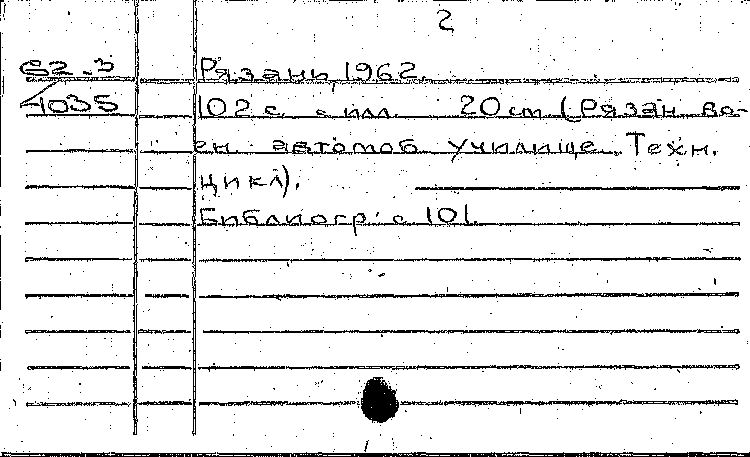 2
62-3
4035
Рязань, 1962.
102 с. с илл. 20 см (Рязан. во-
ен. автомоб. училище. Техн.
цикл).
Библиогр: с 101